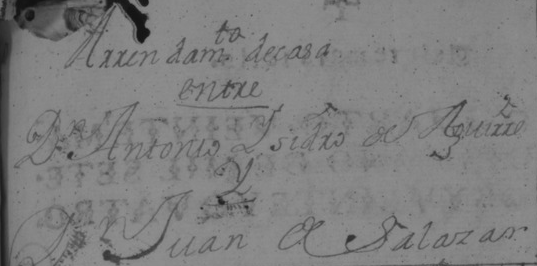 Arrendam.to de casa
entre
D.n Antonio Isidro de Aguirre
Y
D.n Juan de Salazar